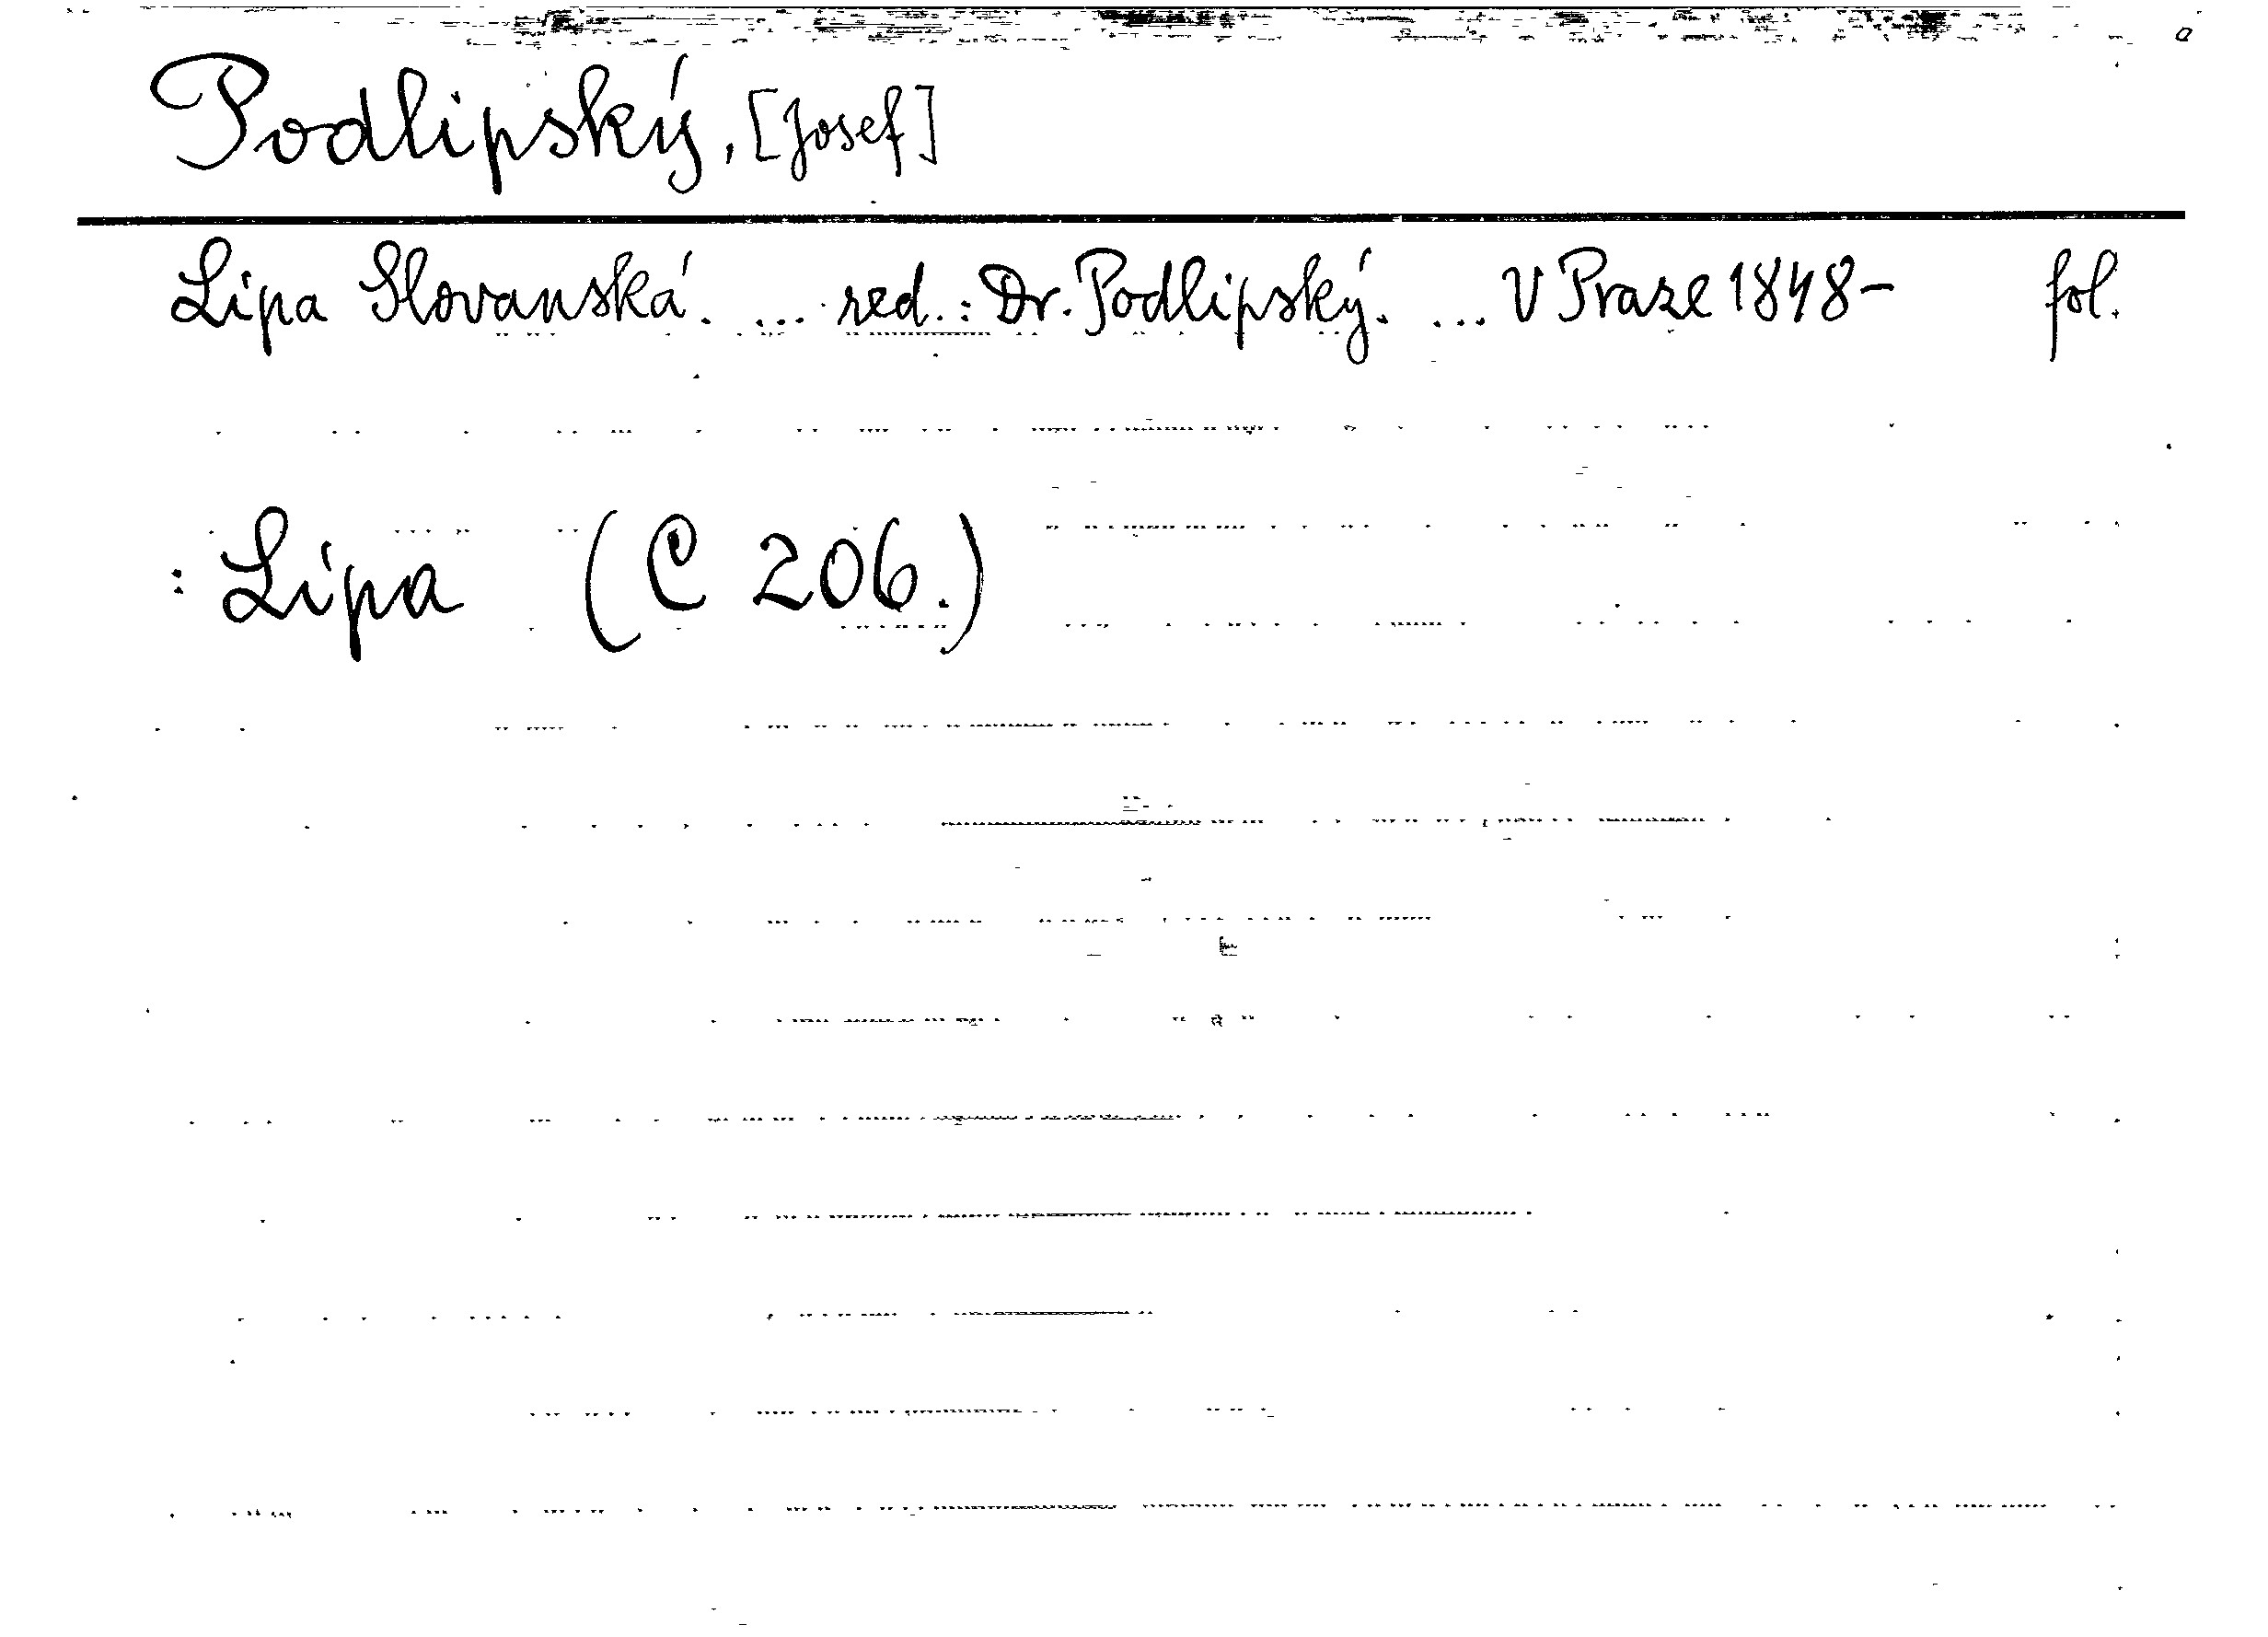 Podlipský, [Josef]
Lípa Slovanská. ... red.: Dr. Podlipský. ... V Praze 1848- fol.
: Lípa (C 206.)